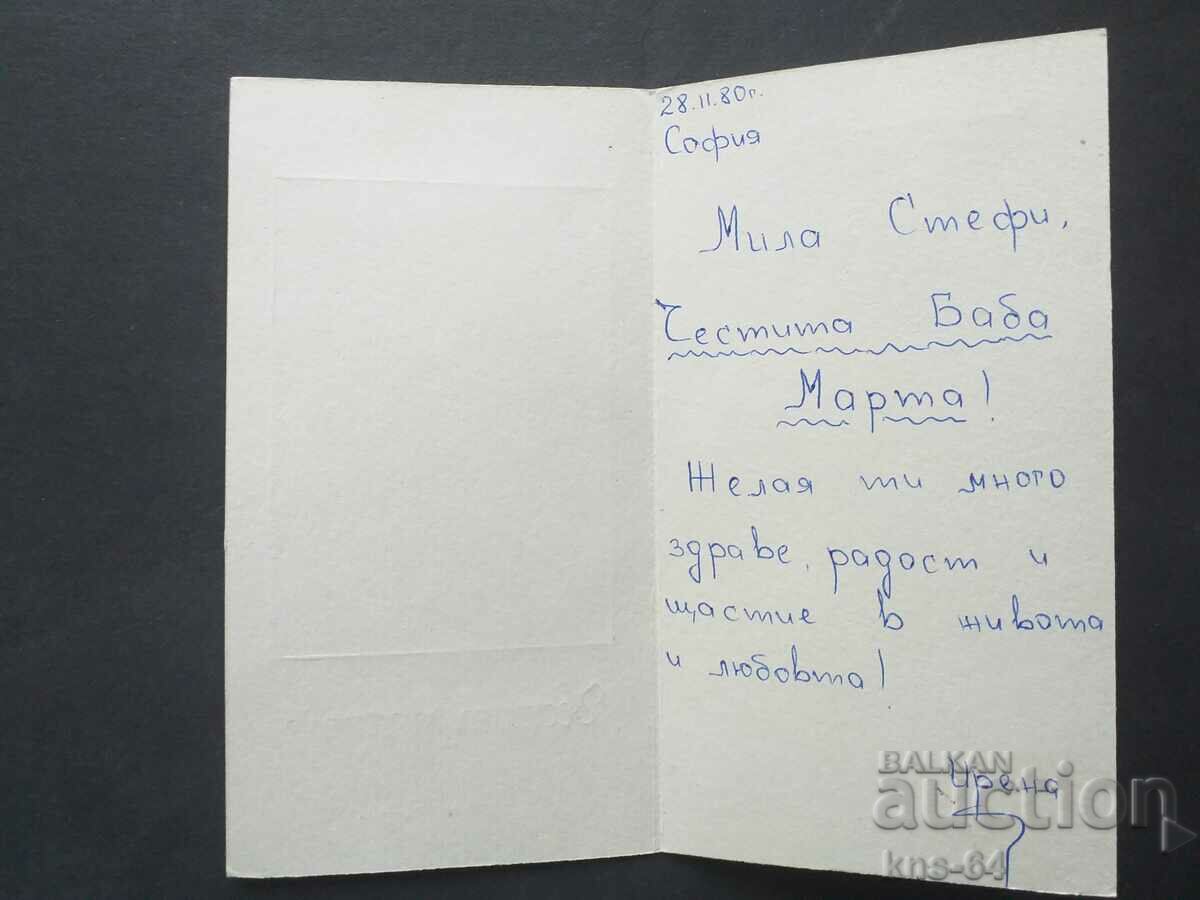 28.II.80г.
София
Мила Стефи,
Честита Баба
Марта!
Желая ти много
здраве, радост и
щастие в живота
и любовта!
Ирена
BALKAN
auction
kns-64